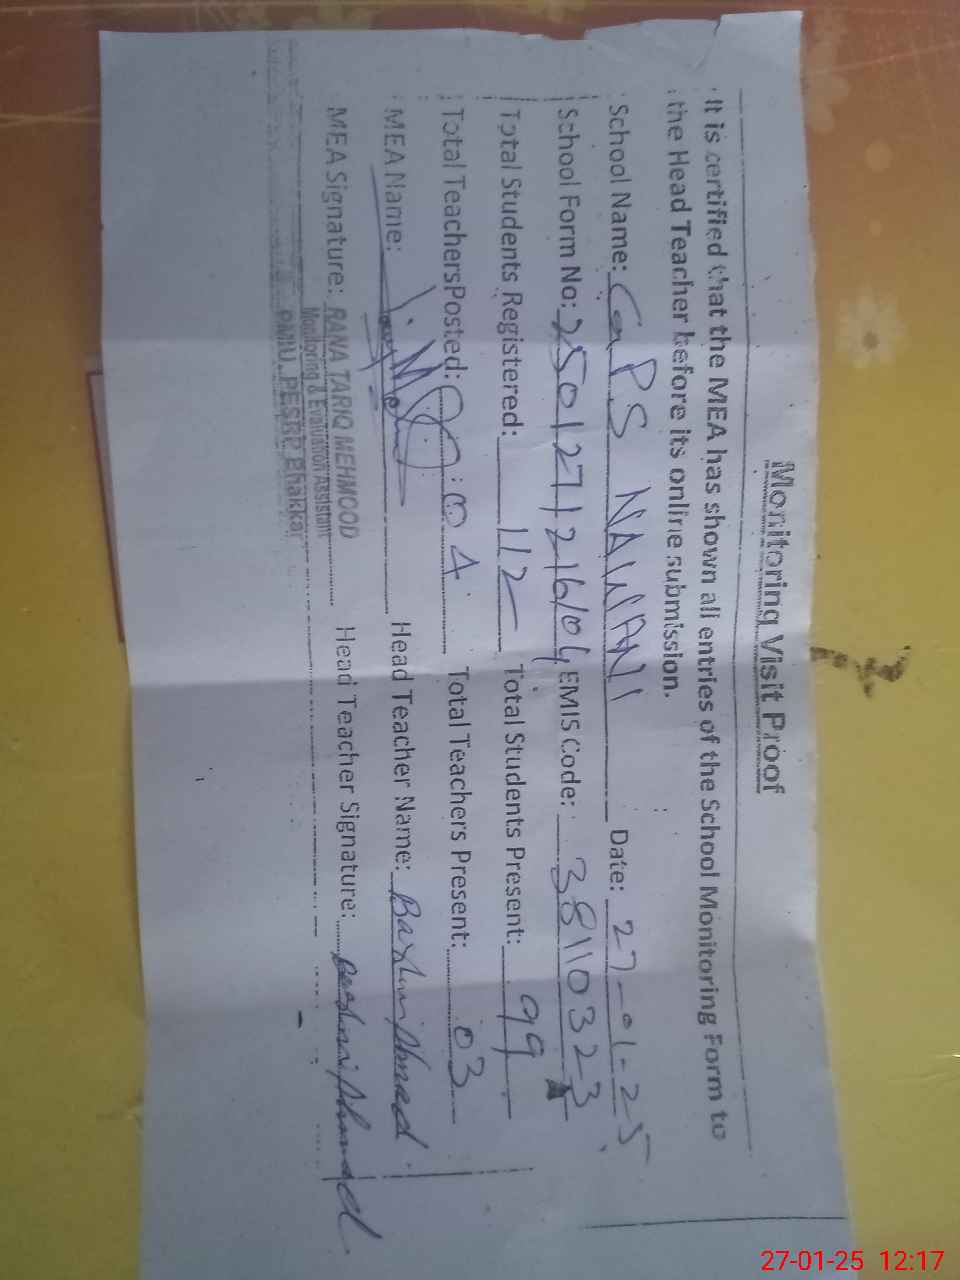 Monitoring Visit Proof
It is certified that the MEA has shown all entries of the School Monitoring Form to
the Head Teacher before its online submission.
School Name: GPS NAWANI Date: 27-01-25
School Form No: EMIS Code: 38110323
Total Students Registered: 112 Total Students Present: 99
Total Teachers Posted: 04 Total Teachers Present: 03
MEA Name: Head Teacher Name: Ahmad
MEA Signature: RANA TARIQ MEHMOOD Head Teacher Signature: Ahmad
Monitoring & Evaluation Assistant
PMIU, PESRP Bhakkar
27-01-25 12:17